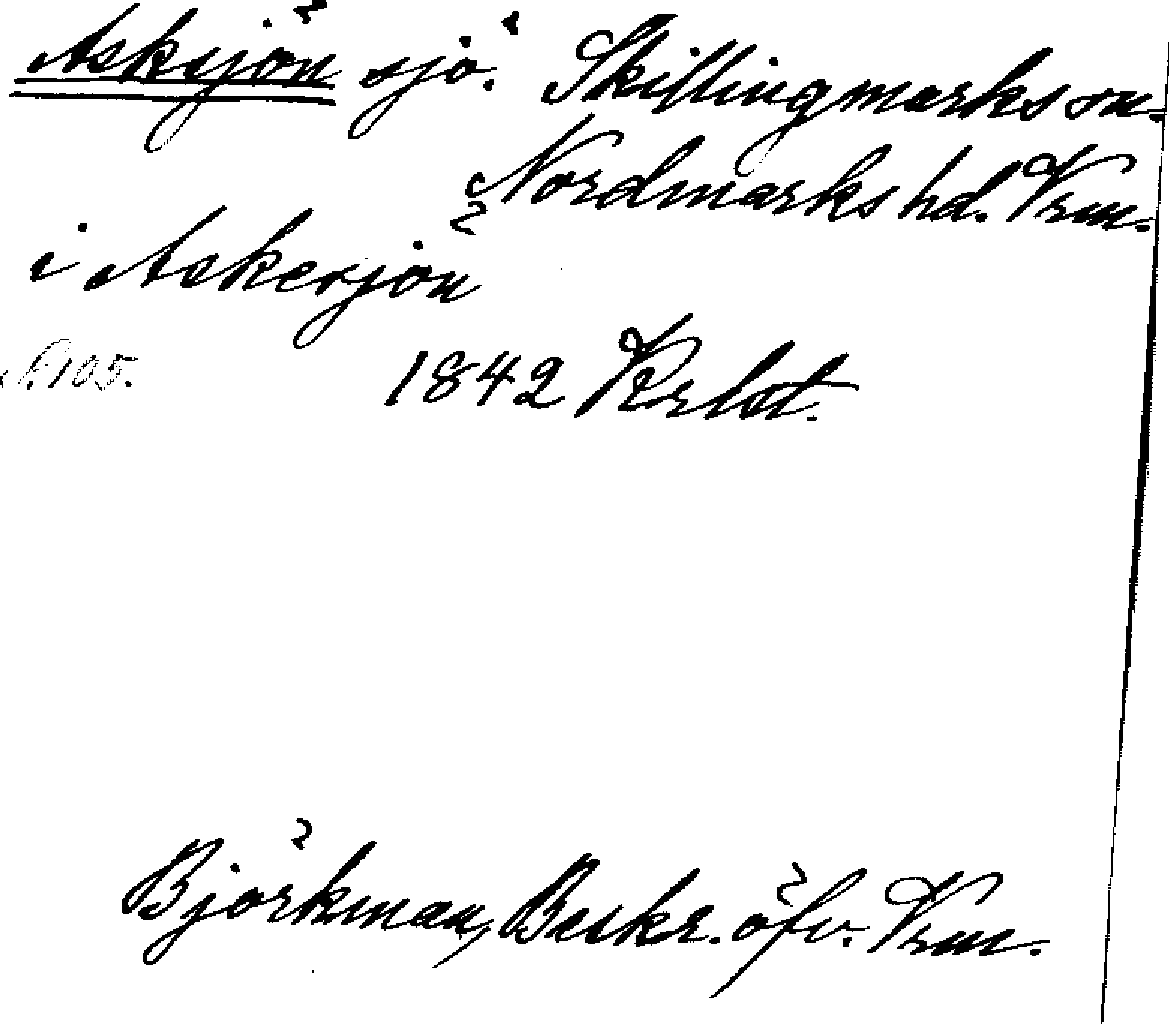 Asksjön sjö. Skillingmarks sn.
Nordmarks hd. Vrm.
i Askersjön
s. 105. 1842 Krlst.
Björkman, Beskr. öfv. Vrm.